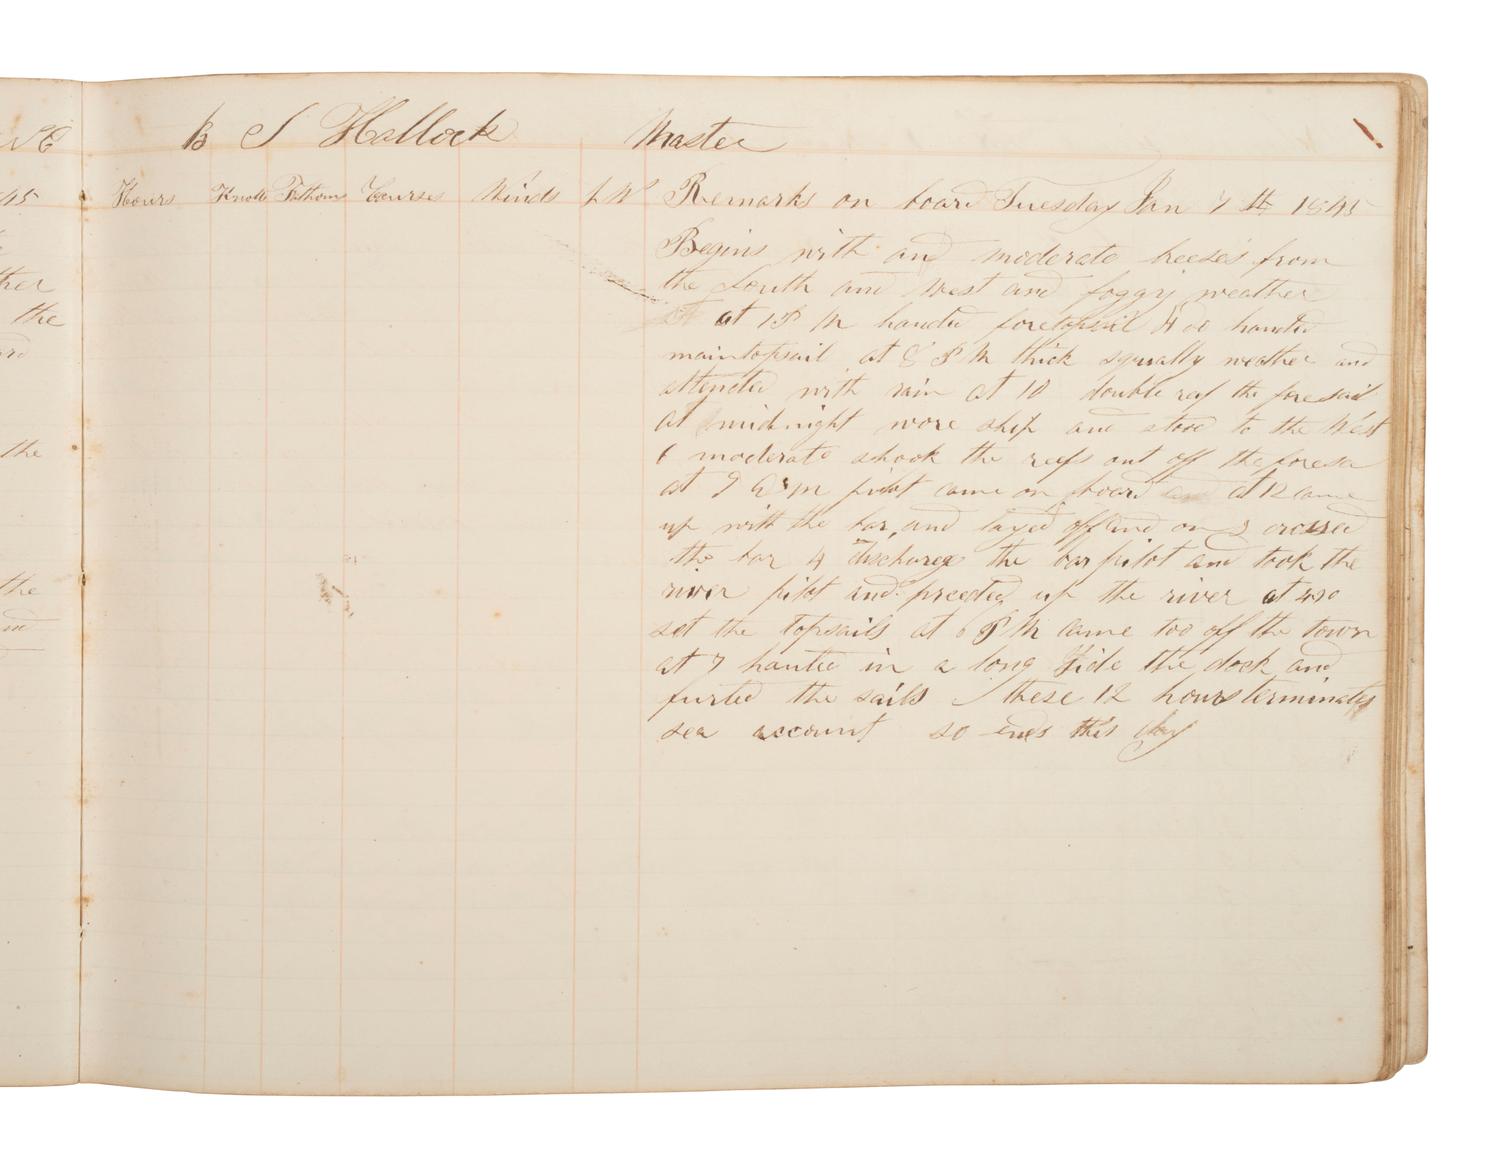 B S Hallock Master
Hours Knots Fathoms Courses Winds L W Remarks on board Tuesday Jan 7th 1845
Begins with and moderate breeses from
the South and West and foggy weather
at 1 P M handed foretopsail 4 do handed
maintopsail at 8 P M thick squally weather and
attended with rain at 10 double reef the foresail
at midnight wore ship and stood to the West
6 moderate shook the reefs out off the foresa
at 9 a m pilot came on board and at 12 came
up with the bar, and layed off and on 3 crossed
the bar 4 discharge the bar pilot and took the
river pilot and preceded up the river at 4.30
set the topsails at 6 P M came too off the town
at 7 hauled in a long Side the dock and
furled the sails these 12 hours terminates
sea account so ends this day
NE
45
ther
the
the
the